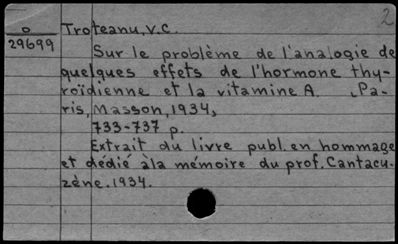 2
o
29699
Troteanu, V.C.
Sur le problème de l'analogie de
quelques effets de l'hormone thy-
roïdienne et la vitamine A. Pa-
ris, Masson, 1934,
733-737 p.
Extrait du livre publ. en hommage
et dédié àla mémoire du prof. Cantacu-
zène. 1934.